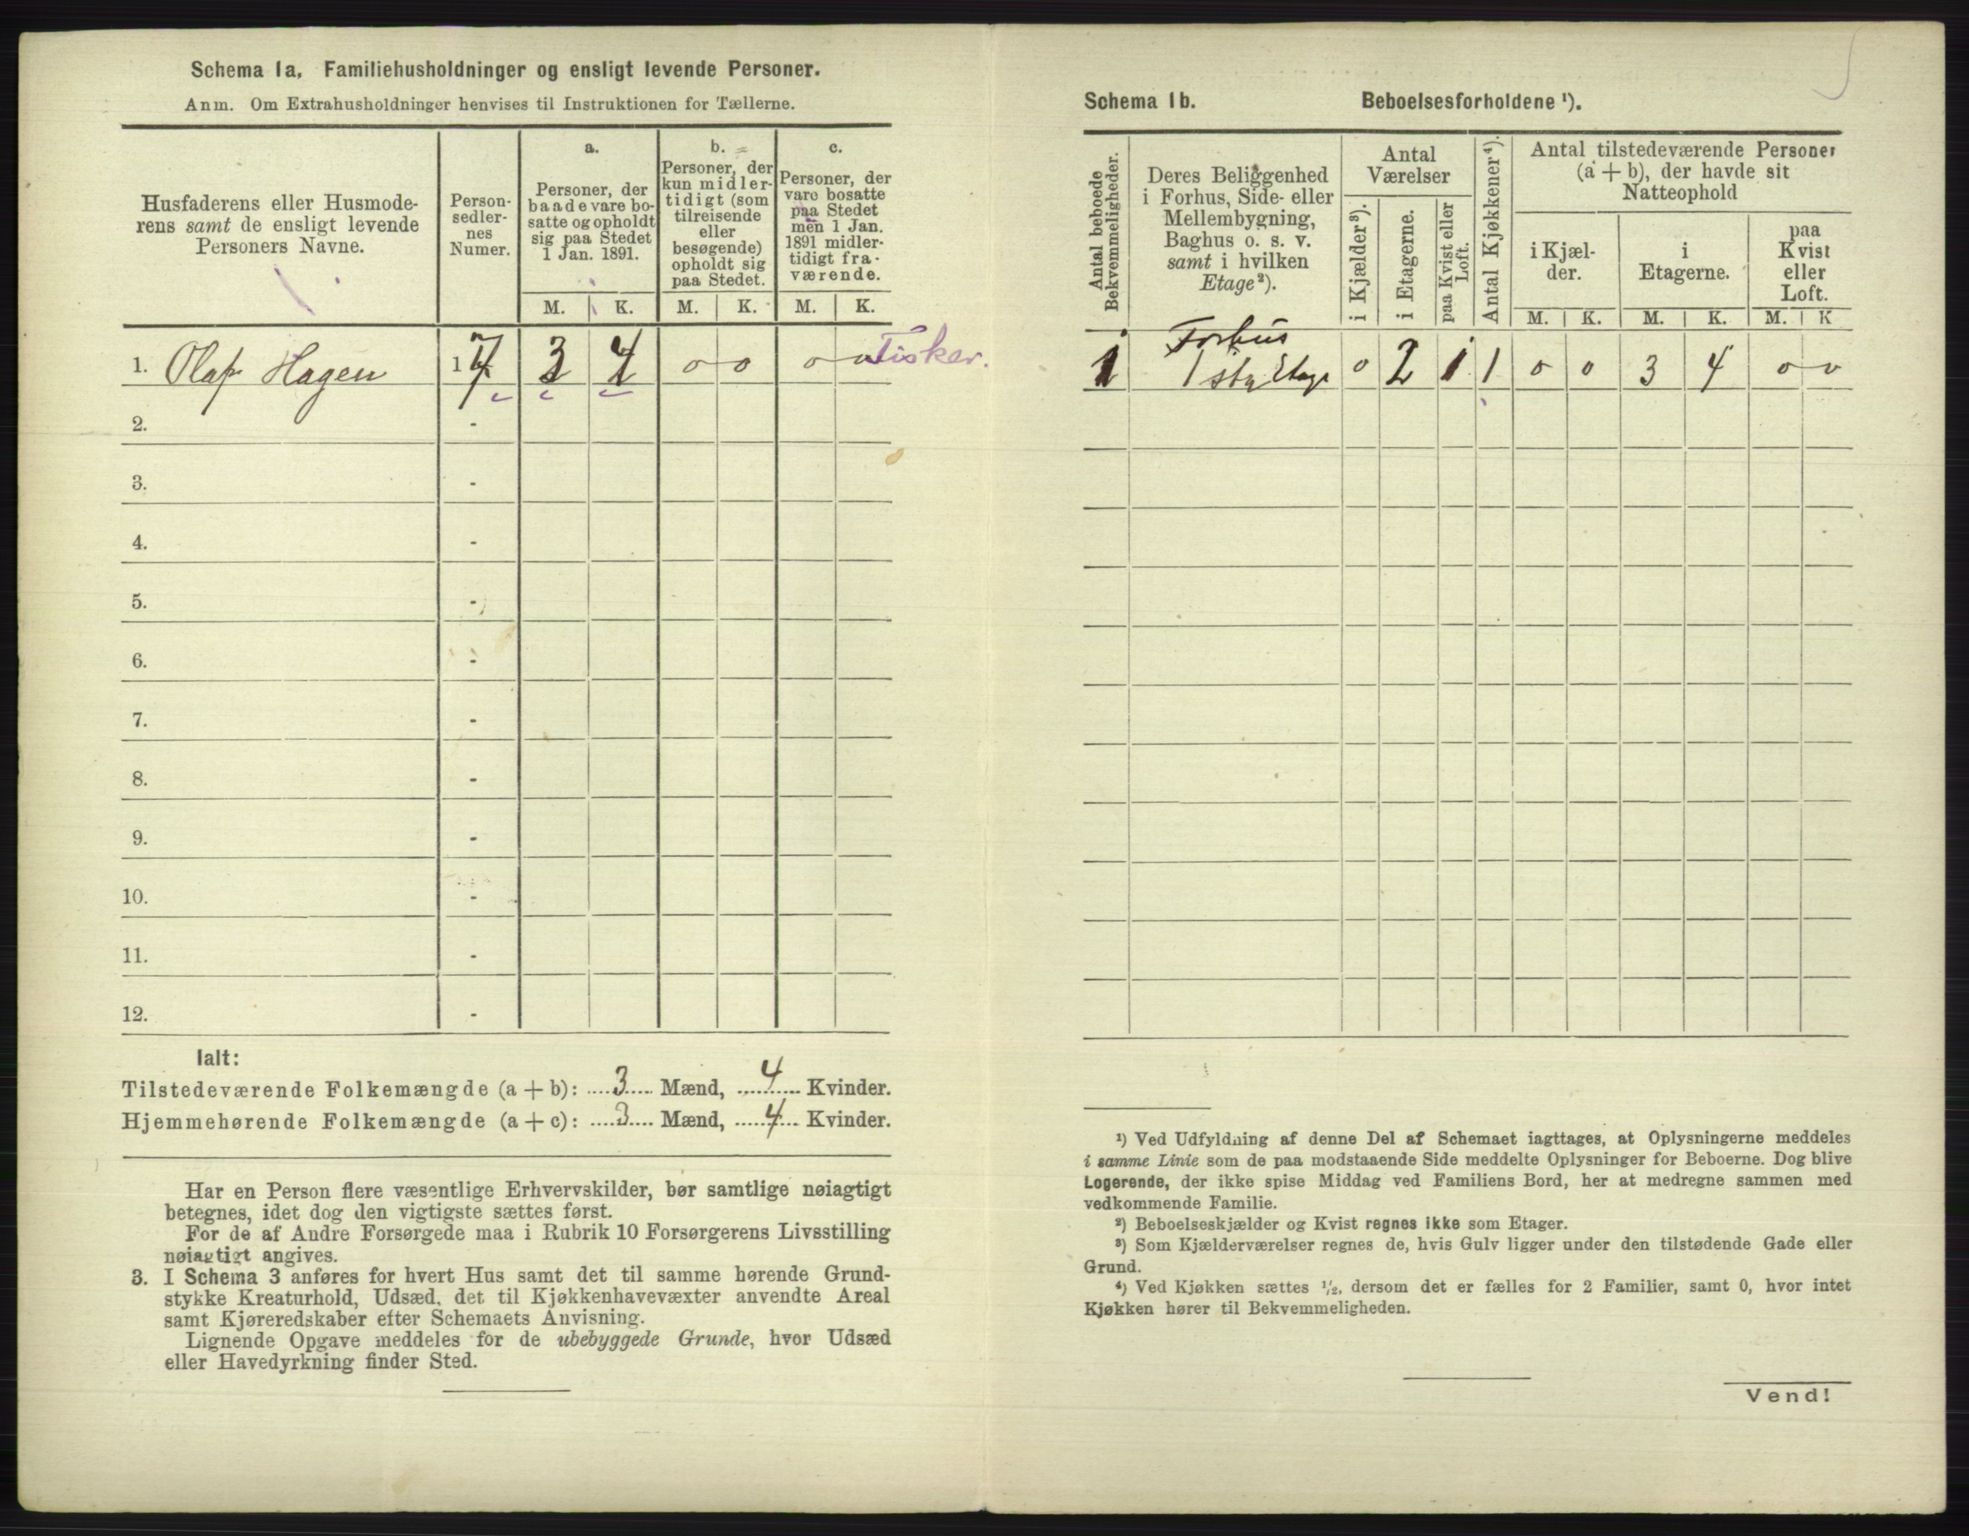 Schema 1a. Familiehusholdninger og ensligt levende Personer.
Anm. Om Extrahusholdninger henvises til Instruktionen for Tællerne.
Husfaderens eller Husmode-
rens samt de ensligt levende
Personers Navne.
Person-
sedler-
nes
Numer.
a.
Personer, der
baade vare bo-
satte og opholdt
sig paa Stedet
1 Jan. 1891.
b.
Personer, der
kun midler-
tidigt (som
tilreisende
eller
besøgende)
opholdt sig
paa Stedet.
c.
Personer, der
vare bosatte
paa Stedet
men 1 Jan.
1891 midler-
tidigt fra-
værende.
M. K. M. K. M. K.
1. Olaf Hagen 1 7 3 4 o o o o Fisker.
2. -
3. -
4. -
5. -
6. -
7. -
8. -
9. -
10. -
11. -
12. -
Ialt:
Tilstedeværende Folkemængde (a + b): 3 Mænd, 4 Kvinder.
Hjemmehørende Folkemængde (a + c): 3 Mænd, 4 Kvinder.
Har en Person flere væsentlige Erhvervskilder, bør samtlige nøiagtigt
betegnes, idet dog den vigtigste sættes først.
For de af Andre Forsørgede maa i Rubrik 10 Forsørgerens Livsstilling
nøiagtigt angives.
3. I Schema 3 anføres for hvert Hus samt det til samme hørende Grund-
stykke Kreaturhold, Udsæd, det til Kjøkkenhavevæxter anvendte Areal
samt Kjøreredskaber efter Schemaets Anvisning.
Lignende Opgave meddeles for de ubebyggede Grunde, hvor Udsæd
eller Havedyrkning finder Sted.
Schema 1b. Beboelsesforholdene ¹).
Antal beboede
Bekvemmeligheder.
Deres Beliggenhed
i Forhus, Side- eller
Mellembygning,
Baghus o. s. v.
samt i hvilken
Etage²).
Antal
Værelser
i Kjælder³).
i Etagerne.
paa Kvist eller
Loft.
Antal Kjøkkener⁴).
Antal tilstedeværende Personer
(a + b), der havde sit
Natteophold
i Kjæl-
der.
i
Etagerne.
paa
Kvist
eller
Loft.
M. K. M. K. M. K
Forhus
1 1ste Etage 0 2 1 1 o o 3 4 o o
¹) Ved Udfyldning af denne Del af Schemaet iagttages, at Oplysningerne meddeles
i samme Linie som de paa modstaaende Side meddelte Oplysninger for Beboerne. Dog blive
Logerende, der ikke spise Middag ved Familiens Bord, her at medregne sammen med
vedkommende Familie.
²) Beboelseskjælder og Kvist regnes ikke som Etager.
³) Som Kjælderværelser regnes de, hvis Gulv ligger under den tilstødende Gade eller
Grund.
⁴) Ved Kjøkken sættes ¹/₂, dersom det er fælles for 2 Familier, samt 0, hvor intet
Kjøkken hører til Bekvemmeligheden.
Vend!